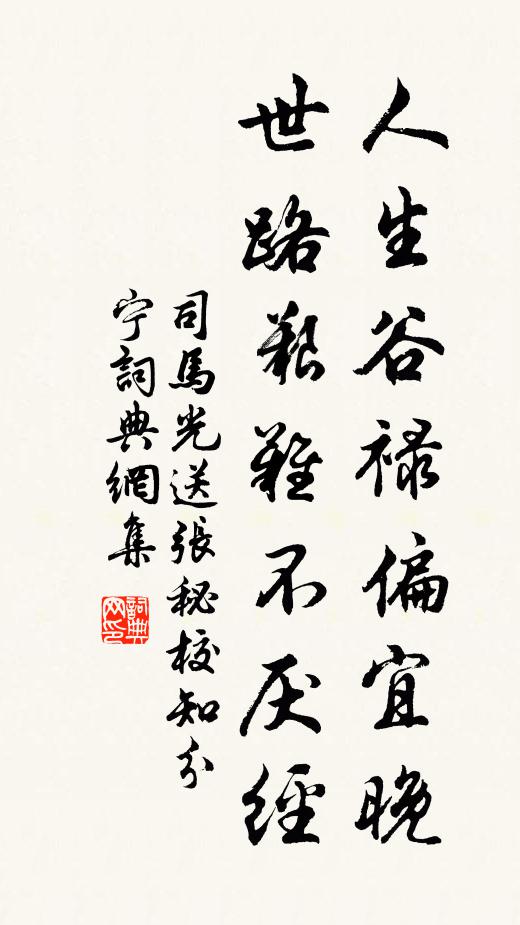 人生谷禄偏宜晚
世路艱難不厌經
司馬光送張秘校知分
宁詞典網集
詞典网印